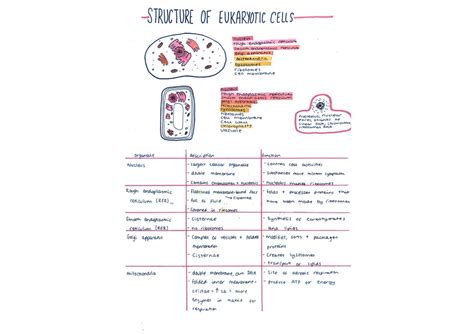 STRUCTURE OF EUKARYOTIC CELLS
nucleus
rough endoplasmic reticulum
smooth endoplasmic reticulum
golgi apparatus
mitochondria
lysosomes
ribosomes
cell membrane
nucleus
rough endoplasmic reticulum
smooth endoplasmic reticulum
golgi apparatus
mitochondria
ribosomes
cell membrane
cell wall
chloroplasts
vacuole
organelle
description
function
Nucleus
- largest cellular organelle
- double membrane
- contains chromosomes + nucleolus
- controls cell activities
- nucleolus makes ribosomes
Rough endoplasmic
reticulum (RER)
- flattened membrane-bound
full of fluid
- covered in ribosomes
- folds + processes proteins that
have been made by ribosomes
Smooth endoplasmic
reticulum
- cisternae
- no ribosomes
- synthesis of carbohydrates
and lipids
Golgi apparatus
- complex of vesicles + folded
membranes
- cisternae
- modifies, sorts + packages
proteins
- creates lysosomes
- transport of lipids
mitochondria
- double membrane, own DNA
- folded inner membrane -
cristae =
enzymes in matrix for
respiration
- site of aerobic respiration
- produce ATP for energy